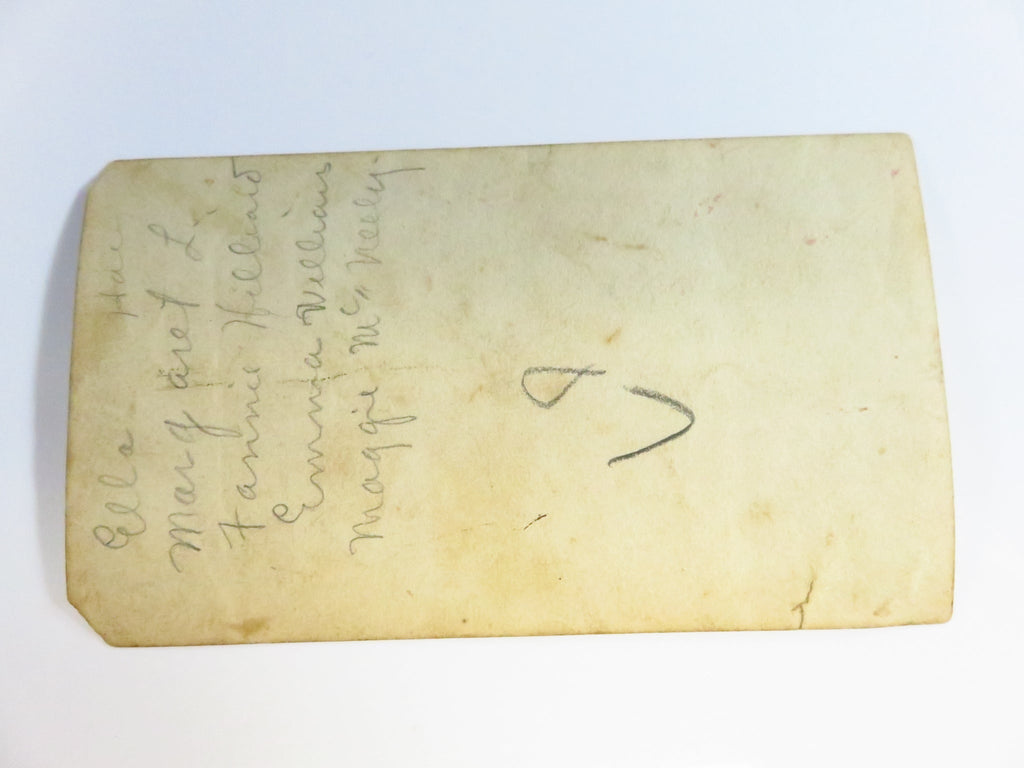 Ella
Margaret L.
Fannie Hilliard
Emma Williams
Maggie McNeely.